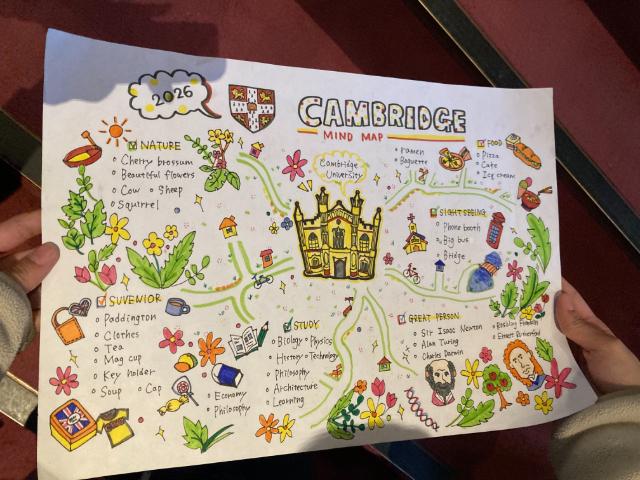 2026
CAMBRIDGE
MIND MAP
NATURE
Cherry brossum
Beautiful flowers
Cow Sheep
Squirrel
Cambridge
University
ramen
Baguette
FOOD
Pizza
Cake
Ice cream
SIGHTSEEING
Phone booth
Big bus
Bridge
SUVENIOR
Paddington
Clothes
Tea
Mag cup
Key holder
Soup Cap
STUDY
Biology Physics
History Technology
Philosophy
Architecture
Learning
Economy
Philosophy
GREAT PERSON
Sir Isaac Newton
Alan Turing
Charles Darwin
Rosaling Franklin
Ernest Rutherford